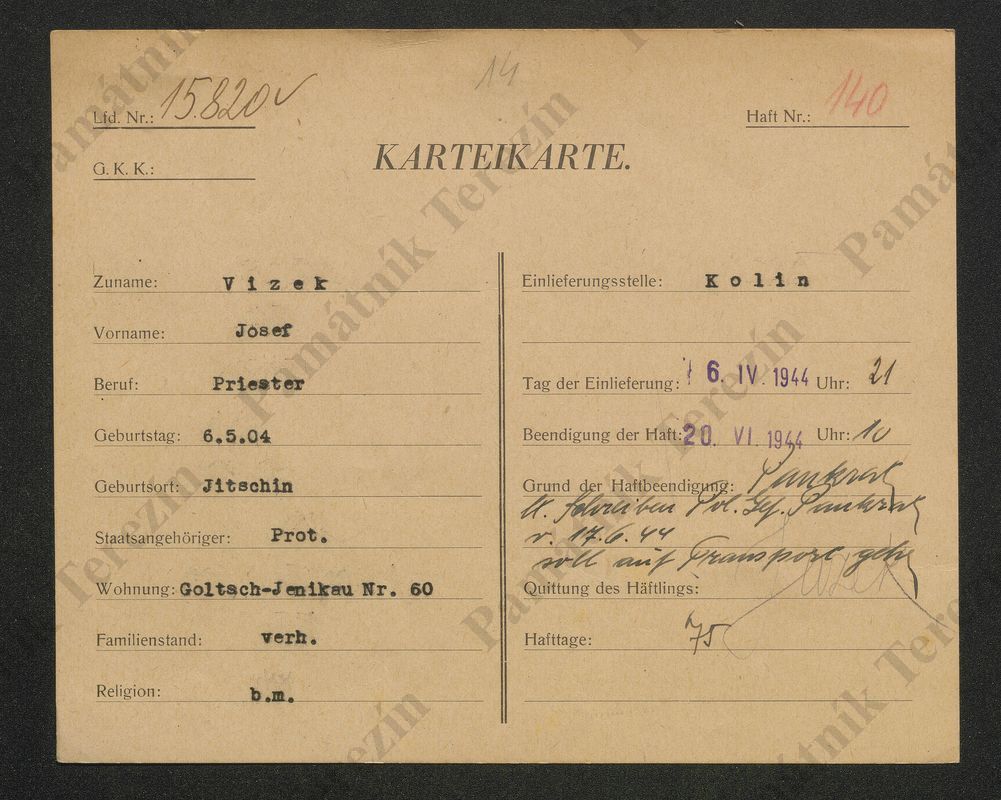 14
Lfd. Nr.: 15.820
Haft Nr.: 140
G. K. K.:
KARTEIKARTE.
Zuname: Vizek
Vorname: Josef
Beruf: Priester
Geburtstag: 6.5.04
Geburtsort: Jitschin
Staatsangehöriger: Prot.
Wohnung: Goltsch-Jenikau Nr. 60
Familienstand: verh.
Religion: b.m.
Einlieferungsstelle: Kolin
Tag der Einlieferung: 6. IV. 1944 Uhr: 21
Beendigung der Haft: 20. VI. 1944 Uhr: 10
Grund der Haftbeendigung: Pankrac
lt. Schreiben Pol. Gef. Pankrac
v. 17.6.44
soll auf Transport gehen
Quittung des Häftlings: Vizek
Hafttage: 75
Památník Terezín
Památník Terezín
Památník Terezín
Památník Terezín